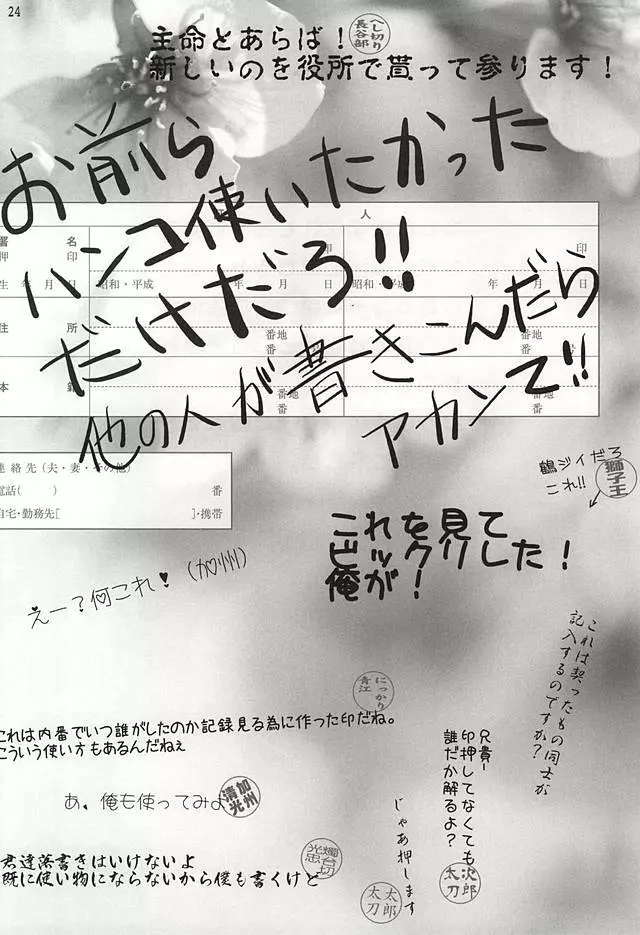 24
主命とあらば！
へし切り
長谷部
新しいのを役所で貰って参ります！
お前ら
ハンコ使いたかった
だけだろ!!
他の人が書きこんだら
アカンて!!
人
署名
押印
印
印
生年月日
昭和・平成
年
月
日
昭和・平成
年
月
日
住所
番地
番
番地
番
本籍
番地
番
番地
番
連絡先（夫・妻・その他）
電話（　　）
番
自宅・勤務先[　　]・携帯
鶴ジイだろ
これ!!
獅子王
これを見て
ビックリした！
俺が！
えー？何これ♥（加州）
これは契ったもの同士が
記入するのですか？
にっかり
青江
これは内番でいつ誰がしたのか記録見る為に作った印だね。
こういう使い方もあるんだねぇ
兄貴ー
印押してなくても
誰だか解るよ？
次郎
太刀
あ、俺も使ってみよ
加州
清光
じゃあ押します
太郎
太刀
燭台切
光忠
君達落書きはいけないよ
既に使い物にならないから僕も書くけど